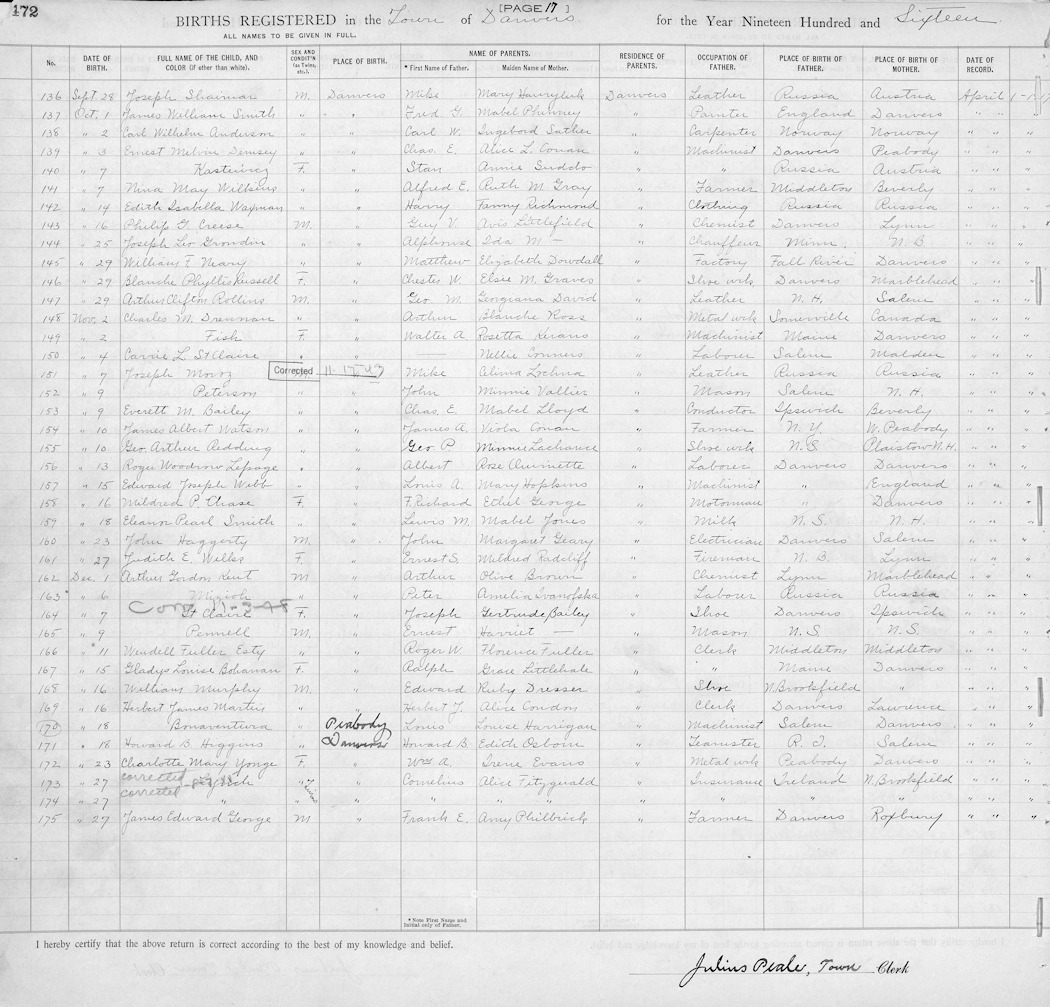 172
[PAGE 17 ]
BIRTHS REGISTERED in the Town of Danvers for the Year Nineteen Hundred and Sixteen
ALL NAMES TO BE GIVEN IN FULL.
No. DATE OF BIRTH. FULL NAME OF THE CHILD, AND COLOR (if other than white). SEX AND CONDIT'N (as Twins, etc.). PLACE OF BIRTH. NAME OF PARENTS. * First Name of Father. Maiden Name of Mother. RESIDENCE OF PARENTS. OCCUPATION OF FATHER. PLACE OF BIRTH OF FATHER. PLACE OF BIRTH OF MOTHER. DATE OF RECORD.
136 Sept. 28 Joseph M. Danvers Mike Mary Danvers Leather Russia Austria April 1-
137 Oct. 1 James William Smith " " Fred G. Mabel Phinney " Painter England Danvers " " "
138 " 2 Carl Wilhelm Anderson " " Carl W. Ingebord Sather " Carpenter Norway Norway " " "
139 " 3 Ernest Melvin Dempsey " " Chas. E. Alice L. Conan " Machinist Danvers Peabody " " "
140 " 7 F. " Stan Annie " " Russia Austria " " "
141 " 7 Nina May Wilkins " " Alfred E. Ruth M. Gray " Farmer Middleton Beverly " " "
142 " 14 Edith Isabella Waxman " " Harry Fanny Richmond " Clothing Russia Russia " " "
143 " 16 Philip G. Creese M. " Guy V. Avis Littlefield " Chemist Danvers Lynn " " "
144 " 25 Joseph Leo Grondin " " Alphonse Ida M — " Chauffeur Minn. N. B. " " "
145 " 29 William F. Neary " " Matthew Elizabeth Dowdall " Factory Fall River Danvers " " "
146 " 27 Blanche Phyllis Russell F. " Chester W. Elsie M. Graves " Shoe wrk Danvers Marblehead " " "
147 " 29 Arthur Clifton Rollins M. " Geo. M. Georgiana David " Leather N. H. Salem " " "
148 Nov. 2 Charles M. Drennan " " Arthur Blanche Ross " Metal wrk Somerville Canada " " "
149 " 2 Fish F. " Walter A. Rosetta Kirans " Machinist Maine Danvers " " "
150 " 4 Carrie L. St Claire " " — Nellie Conners " Laborer Salem Malden " " "
151 " 7 Joseph Moroz Corrected 11-17-43 Mike Alima " Leather Russia Russia " " "
152 " 9 Peterson " " John Minnie Vallier " Mason Salem N. H. " " "
153 " 9 Everett M. Bailey " " Chas. E. Mabel Lloyd " Conductor Ipswich Beverly " " "
154 " 10 James Albert Watson " " James A. Viola Conan " Farmer N. Y. W. Peabody " " "
155 " 10 Geo Arthur Redding " " Geo P. Minnie Lachance " Shoe wrk N. S. Plaistow N.H. " " "
156 " 13 Roger Woodrow Lepage " " Albert Rose Ouimette " Laborer Danvers Danvers " " "
157 " 15 Edward Joseph Webb " " Louis A. Mary Hopkins " Machinist " England " " "
158 " 16 Mildred P. Chase F. " F. Richard Ethel George " Motorman " Danvers " " "
159 " 18 Eleanor Pearl Smith " " Lewis M. Mabel Jones " Milk N. S. N. H. " " "
160 " 23 John Haggerty M. " John Margaret Geary " Electrician Danvers Salem " " "
161 " 27 Judith E. Wilks F. " Ernest S. Mildred Radcliff " Fireman N. B. Lynn " " "
162 Dec. 1 Arthur Gordon Kent M " Arthur Olive Brown " Chemist Lynn Marblehead " " "
163 " 6 " " Peter Amelia Ivanofska " Laborer Russia Russia " " "
164 " 7 Corr. 11-3-48 St Claire F. " Joseph Gertrude Bailey " Shoe Danvers Ipswich " " "
165 " 9 Pennell M. " Ernest Harriet — " Mason N. S. N. S. " " "
166 " 11 Wendell Fuller Esty " " Roger W. Florence Fuller " Clerk Middleton Middleton " " "
167 " 15 Gladys Louise Bohanan F " Ralph Grace Littlehale " " Maine Danvers " " "
168 " 16 William Murphy M. " Edward Ruby Dresser " Shoe N. Brooksfield " " " "
169 " 16 Herbert James Martin " " Herbert J. Alice Condon " Clerk Danvers Lawrence " " "
170 " 18 Bonaventura " Peabody Louis Louise Harrigan " Machinist Salem Danvers " " "
171 " 18 Howard B. Higgins " Danvers Howard B. Edith Osborn " Teamster R. I. Salem " " "
172 " 23 Charlotte Mary Yonge F. " Wm A. Irene Evans " Metal wrk Peabody Danvers " " "
173 " 27 corrected " " Cornelius Alice Fitzgerald " Insurance Ireland N. Brookfield " " "
174 " 27 corrected " " " " " " " " " " " "
175 " 27 James Edward George M " Frank E. Amy Philbrick " Farmer Danvers Roxbury " " "
* Note First Name and Initial only of Father.
I hereby certify that the above return is correct according to the best of my knowledge and belief.
Julius Peale, Town Clerk